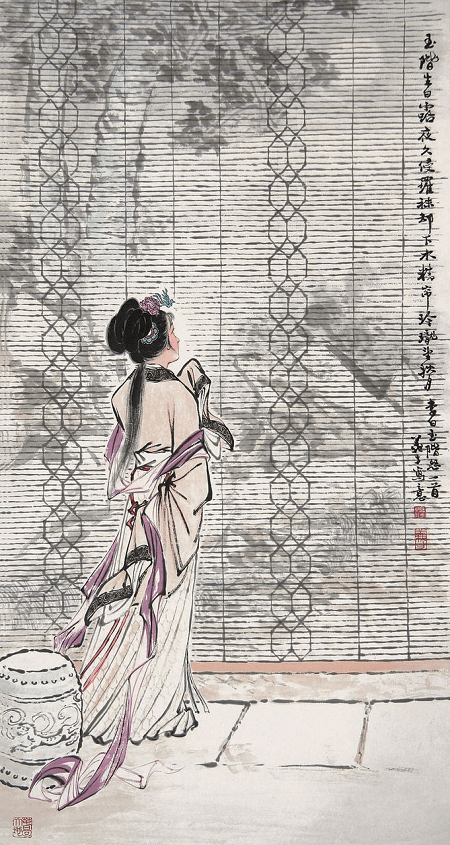 玉階生白露夜久侵羅襪却下水精帘玲瓏望秋月 李白玉階怨一首
寫意